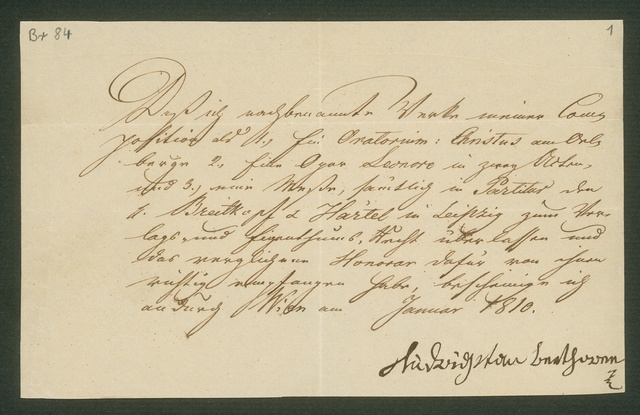 B+ 84
1
Daß ich nachbenannte Werke meiner Com
position als 1., Ein Oratorium: Christus am Oel
berge 2., Eine Oper Leonore in zwey Akten,
und 3., eine Messe, sämtlich in Partitur den
H. Breitkopf & Härtel in Leipzig zum Ver
lags- und Eigenthums-Recht überlassen und
das verglichene Honorar dafür von ihnen
richtig empfangen habe, bescheinige ich
andurch Wien am Januar 1810.
Ludwig van Beethoven